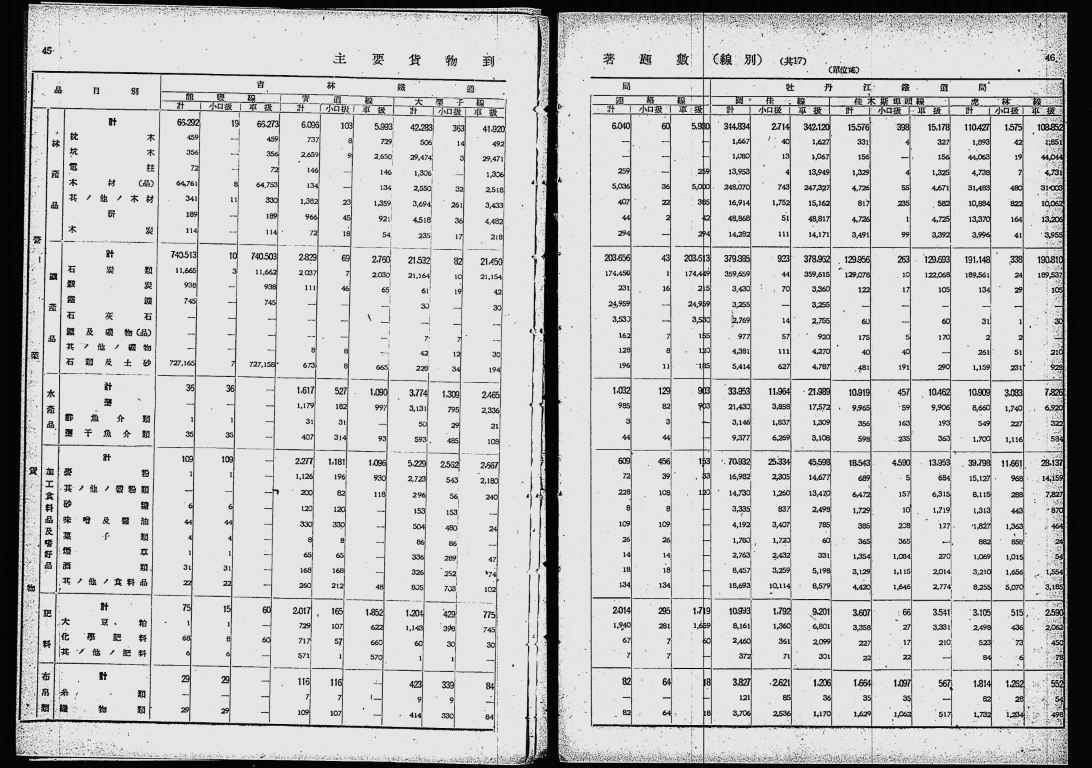 45
主要貨物到
品目別
吉林鐵道
龍豐線 奮道線 大栗子線
計 小口扱 車扱 計 小口扱 車扱 計 小口扱 車扱
營業貨物
林產品
計 66,292 19 66,273 6,096 103 5,993 42,283 363 41,920
枕木 459 — 459 737 8 729 506 14 492
坑木 356 — 356 2,659 9 2,650 29,474 3 29,471
電柱 72 — 72 146 — 146 1,306 — 1,306
木材(品) 64,761 8 64,753 134 — 134 2,550 32 2,518
其ノ他ノ木材 341 11 330 1,382 23 1,359 3,694 261 3,433
薪 189 — 189 966 45 921 4,518 36 4,482
木炭 114 — 114 72 18 54 235 17 218
鑛產品
計 740,513 10 740,503 2,829 69 2,760 21,532 82 21,450
石炭類 11,665 3 11,662 2,037 7 2,030 21,164 10 21,154
骸炭 938 — 938 111 46 65 61 19 42
鐵鑛 745 — 745 — — — 30 — 30
石灰石 — — — — — — — — —
鑛及礦物(品) — — — — — — 7 7 —
其ノ他ノ礦物 — — — 8 8 — 42 12 30
石類及土砂 727,165 7 727,158 673 8 665 228 34 194
水產品
計 36 36 — 1,617 527 1,090 3,774 1,309 2,465
鹽 — — — 1,179 182 997 3,131 795 2,336
鮮魚介類 1 1 — 31 31 — 50 29 21
鹽干魚介類 35 35 — 407 314 93 593 485 108
加工食料品及嗜好品
計 109 109 — 2,277 1,181 1,096 5,229 2,562 2,667
麥粉 1 1 — 1,126 196 930 2,723 543 2,180
其ノ他ノ穀粉類 — — — 200 82 118 296 56 240
砂糖 6 6 — 120 120 — 153 153 —
味噌及醬油 44 44 — 330 330 — 504 480 24
菓子類 4 4 — 8 8 — 86 86 —
煙草 1 1 — 65 65 — 336 289 47
酒類 31 31 — 168 168 — 326 252 74
其ノ他ノ食料品 22 22 — 260 212 48 805 703 102
肥料
計 75 15 60 2,017 165 1,852 1,204 429 775
大豆粕 1 1 — 729 107 622 1,143 398 745
化學肥料 68 8 60 717 57 660 60 30 30
其ノ他ノ肥料 6 6 — 571 1 570 1 1 —
布帛類
計 29 29 — 116 116 — 423 339 84
糸類 — — — 7 7 — 9 9 —
織物類 29 29 — 109 107 — 414 330 84
著噸數(線別) (共17)
(單位瓲)
46
局 牡丹江鐵道局
連絡線 圖佳線 佳木斯埠頭線 虎林線
計 小口扱 車扱 計 小口扱 車扱 計 小口扱 車扱 計 小口扱 車扱
6,040 60 5,980 344,834 2,714 342,120 15,576 398 15,178 110,427 1,575 108,852
— — — 1,667 40 1,627 331 4 327 1,893 42 1,851
— — — 1,080 13 1,067 156 — 156 44,063 19 44,044
259 — 259 13,953 4 13,949 1,329 4 1,325 4,738 7 4,731
5,036 36 5,000 248,070 743 247,327 4,726 55 4,671 31,483 480 31,003
407 22 385 16,914 1,752 15,162 817 235 582 10,884 822 10,062
44 2 42 48,868 51 48,817 4,726 1 4,725 13,370 164 13,206
294 — 294 14,282 111 14,171 3,491 99 3,392 3,996 41 3,955
203,656 43 203,613 379,885 923 378,962 129,956 263 129,693 191,148 338 190,810
174,450 1 174,449 359,659 44 359,615 129,078 10 122,068 189,561 24 189,537
231 16 215 3,430 70 3,360 122 17 105 134 29 105
24,959 — 24,959 3,255 — 3,255 — — — — — —
3,530 — 3,530 2,769 14 2,755 60 — 60 31 1 30
162 7 155 977 57 920 175 5 170 2 2 —
128 8 120 4,381 111 4,270 40 40 — 261 51 210
196 11 185 5,414 627 4,787 481 191 290 1,159 231 928
1,032 129 903 33,953 11,964 21,989 10,919 457 10,462 10,909 3,083 7,826
985 82 903 21,430 3,858 17,572 9,965 59 9,906 8,660 1,740 6,920
3 3 — 3,146 1,837 1,309 356 163 193 549 227 322
44 44 — 9,377 6,269 3,108 598 235 363 1,700 1,116 584
609 456 153 70,932 25,334 45,598 18,543 4,590 13,953 39,798 11,661 28,137
72 39 33 16,982 2,305 14,677 689 5 684 15,127 968 14,159
228 108 120 14,730 1,260 13,470 6,472 157 6,315 8,115 288 7,827
8 8 — 3,335 837 2,498 1,729 10 1,719 1,313 443 870
109 109 — 4,192 3,407 785 385 208 177 1,827 1,363 464
26 26 — 1,780 1,720 60 365 365 — 882 858 24
14 14 — 2,763 2,432 331 1,354 1,084 270 1,069 1,015 54
18 18 — 8,457 3,259 5,198 3,129 1,115 2,014 3,210 1,656 1,554
134 134 — 18,693 10,114 8,579 4,420 1,646 2,774 8,255 5,070 3,185
2,014 295 1,719 10,993 1,792 9,201 3,607 66 3,541 3,105 515 2,590
1,940 281 1,659 8,161 1,360 6,801 3,358 27 3,331 2,498 436 2,062
67 7 60 2,460 361 2,099 227 17 210 523 73 450
7 7 — 372 71 301 22 22 — 84 6 78
82 64 18 3,827 2,621 1,206 1,664 1,097 567 1,814 1,262 552
— — — 121 85 36 35 35 — 82 28 54
82 64 18 3,706 2,536 1,170 1,629 1,062 517 1,732 1,234 498